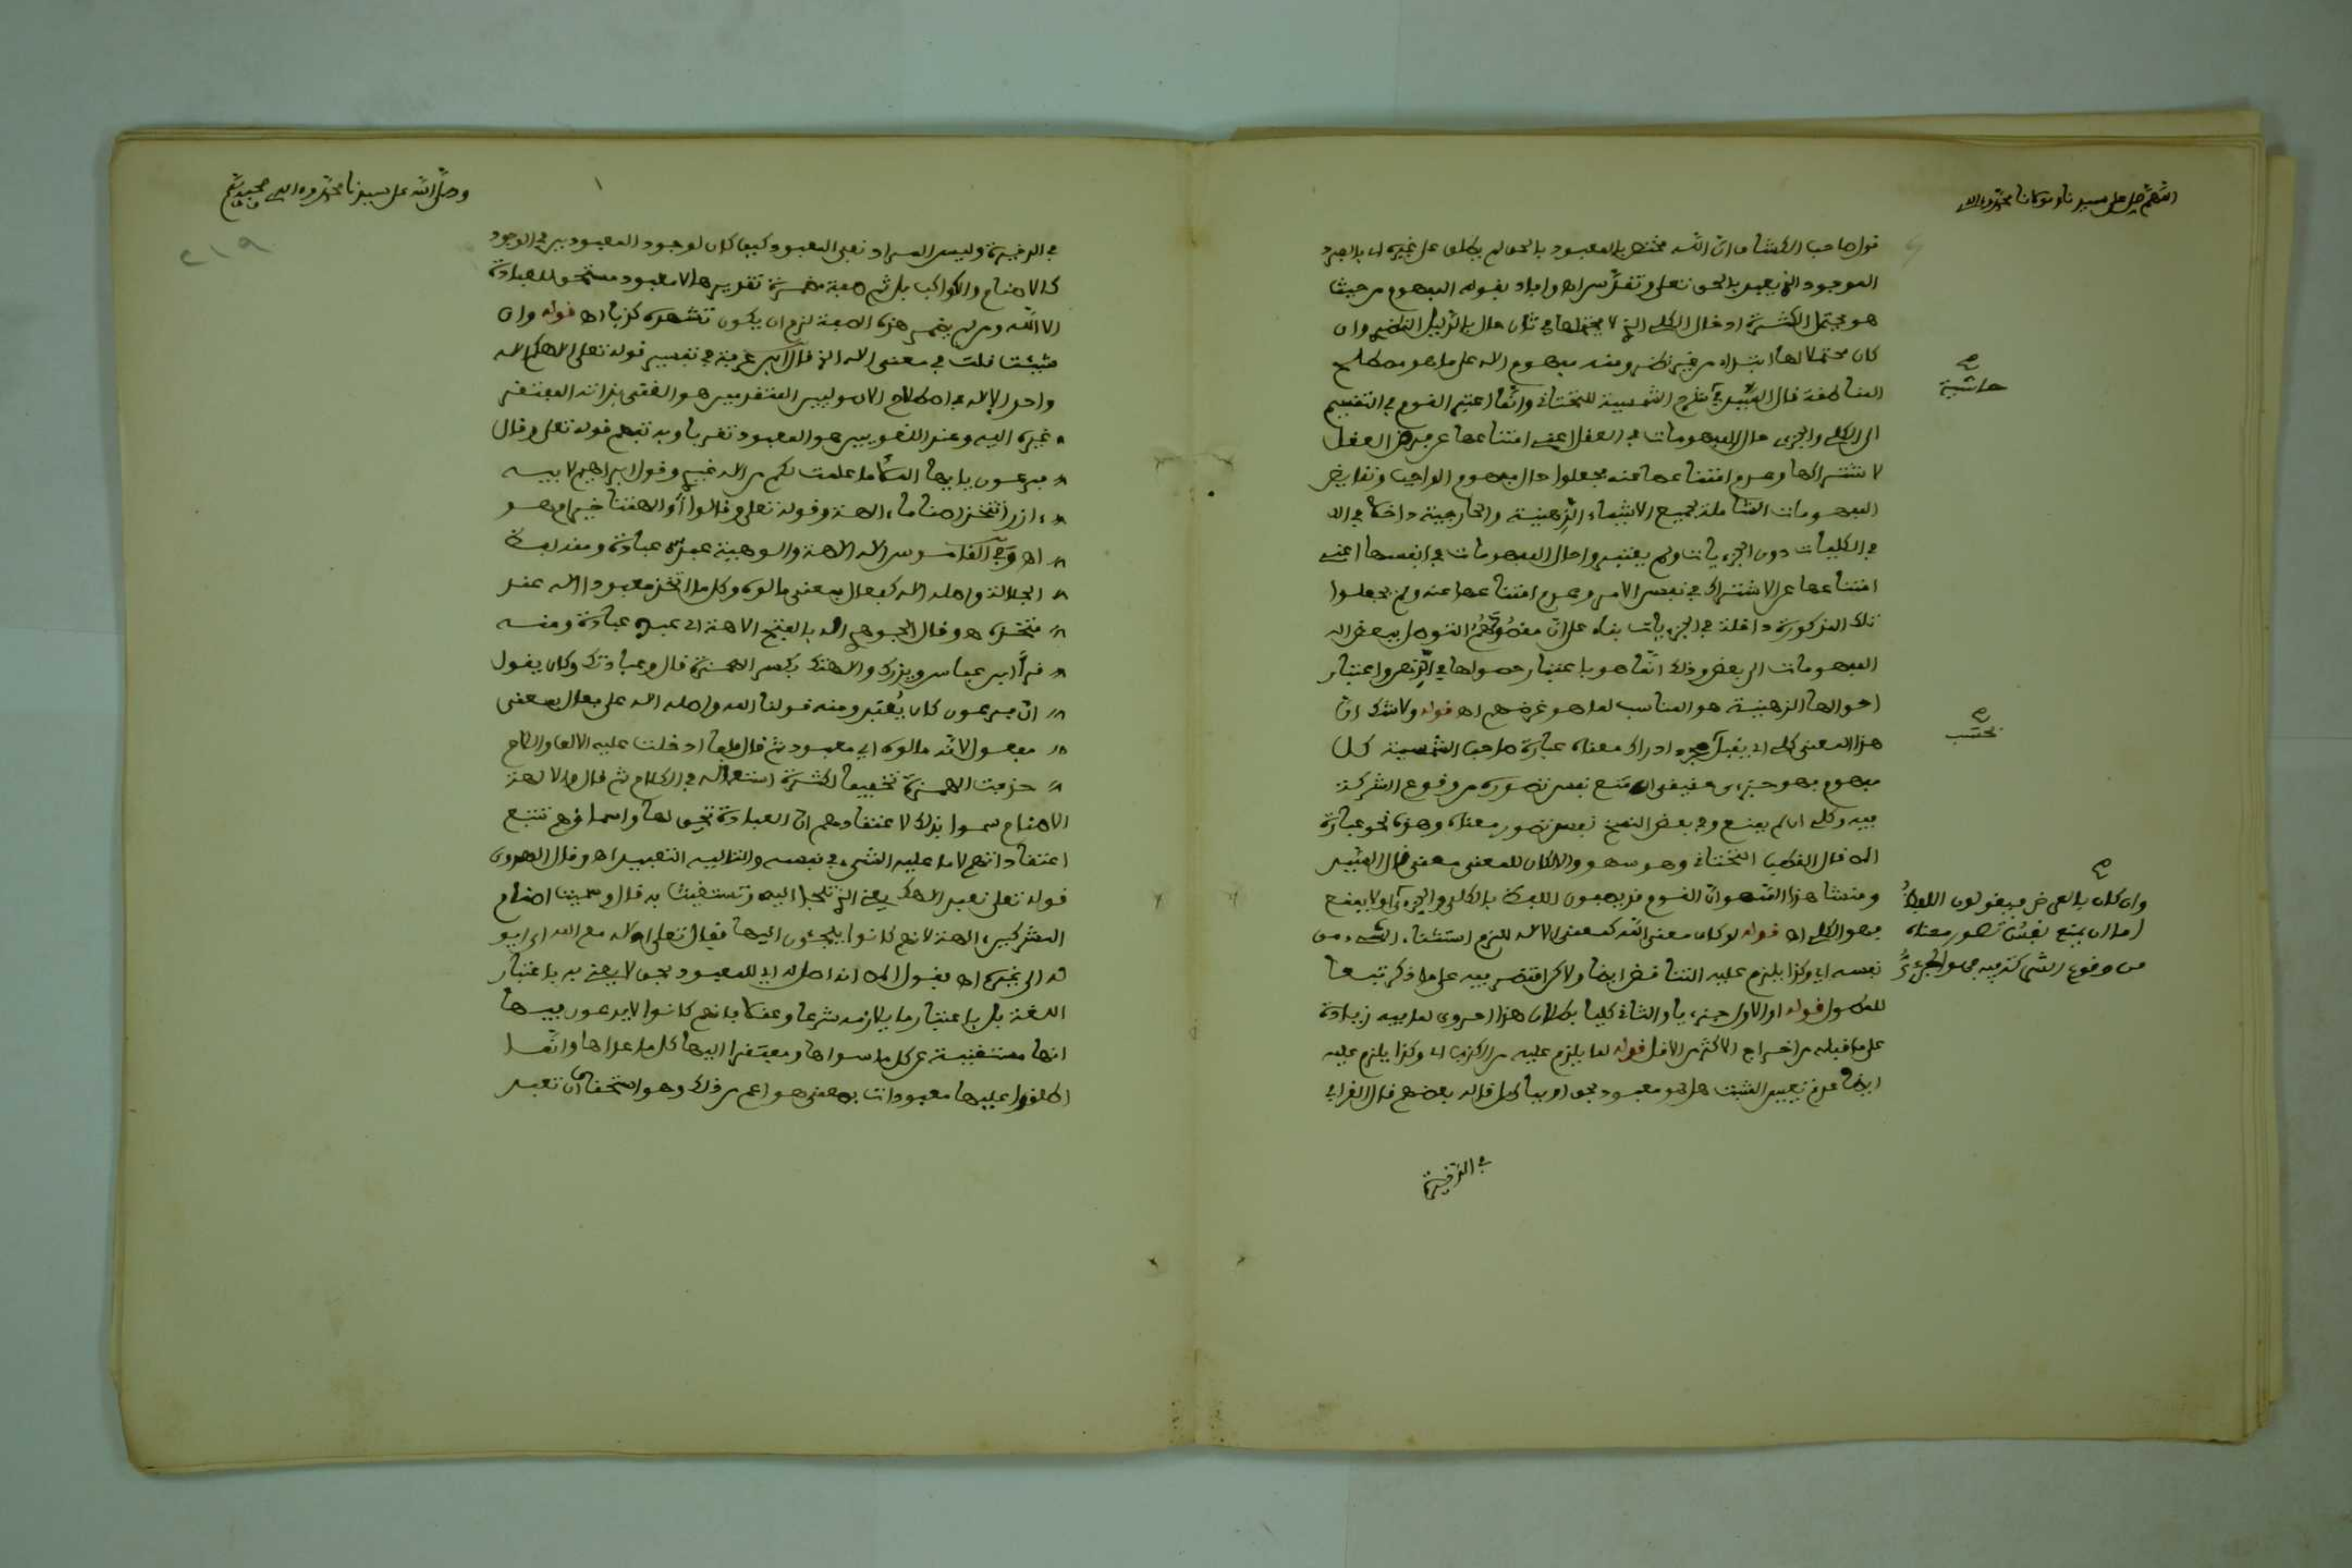 اللهم صل على سيدنا ومولانا محمد وءاله
قول صاحب الكشاف ان الله مختص بالمعبود بالحق لم يطلق على غيره اي بالفرد
الموجود الذي يعبد بالحق تعلى وتقدس اه واراد بقوله المفهوم من حيث
هو محتمل الكثرة ادخال الكلي الذي لا يحتملها في ثاني حال بالدليل القطعي وان
كان محتملا لها ابتداء من غير نظر ومنه مفهوم الاله على ما هو مصطلح
المناطقة قال السيد في شرح الشمسية للتختاني وانما اعتبر القوم في التقسيم
الى الكلي والجزءي حال المفهومات في العقل اعني امتناعها عن فرض العقل
لاشتراكها وعدم امتناعها عنه فجعلوا حال مفهوم الواجب ونقايض
المفهومات الشاملة لجميع الاشياء الذهنية والخارجية داخلا في الا
في الكليات دون الجزءيات ولم يعتبروا حال المفهومات في انفسها اعني
امتناعها عن الاشتراك في نفس الامر وعدم امتناعها عنه ولم يجعلوا
تلك المذكورة داخلة في الجزءيات بناء على ان مقصودهم التوصل ببعض اله
المفهومات الى بعض وذلك انما هو باعتبار حصولها في الذهن واعتبار
احوالها الذهنية هو المناسب لما هو غرضهم اه قوله ولا شك ان
هذا المعنى كلي اي يقبل مجرد ادراك معناه عبارة صاحب الشمسية كل
مفهوم فهو جزءي حقيقي ان منع نفس تصوره من وقوع الشركة
فيه وكلي ان لم يمنع وفي بعض النسخ نفس تصور معناه وهذه نحو عبارة
اله قال القطب التختاني وهو سهو والا لكان للمعنى معنى قال السيد
ومنشا هذا السهو ان القوم قد يصفون اللفظ بالكلي والجزءي اولا يمنع
فهو الكلي اه قوله لو كان معنى الله كمعنى الاله للزم استثناء الشيء من
نفسه اي وكذا يلزم عليه التناقض ايضا ولاكن اقتصر فيه على ما ذكر تبعا
للمطول قوله او الاول جزءيا والثاني كليا بطلان هذا احروي لما فيه زيادة
على ما قبله من اخراج الاكثر من الاقل قوله لما يلزم عليه من الكذب اي وكذا يلزم عليه
ايضا عدم تعيين المثبت هل هو معبود بحق او بباطل قاله بعضهم قال القرافي
في الذخيرة
حاشية
بحسب
وان كان بالعرض فيقولون اللفظ
اما ان يمنع نفس تصور معناه
من وقوع الشركة فيه فهو الجزءي
وصلى الله على سيدنا محمد وءاله وصحبه وسلم
٢١٩
في الذخيرة وليس المراد نفي المعبود كيف كان لوجود المعبودين في الوجود
كالاصنام والكواكب بل ثم صفة مضمرة تقديرها لا معبود مستحق للعبادة
الا الله ومن لم يضمر هذه الصفة لزم ان يكون تشهده كذبا اه قوله وان
شئت قلت في معنى الاله الخ قال ابن عرفة في تفسير قوله تعلى الاهكم اله
واحد الاله في اصطلاح الاصوليين المتقدمين هو الغني بذاته المفتقر
غيره اليه وعند اللغويين هو المعبود تقربا وبه تفهم قوله تعلى وقال
فرعون يا ايها الملأ ما علمت لكم من اله غيري وقول ابراهيم لابيه
ءازر اتتخذ اصناما ءالهة وقوله تعلى وقالوا ءالهتنا خير ام هو
اه وفي القاموس اله الاهة والوهية عبد عبادة ومنه لفظ
الجلالة واصله اله كفعال بمعنى مالوه وكل ما اتخذ معبودا اله عند
متخذه هو وقال الجوهري اله بالفتح الاهة اي عبد عبادة ومنه
قرأ ابن عباس ويذرك والاهتك بكسر الهمزة قال وعبادتك وكان يقول
ان فرعون كان يعبد ومنه قولنا الله واصله اله على فعال بمعنى
مفعول لانه مالوه اي معبود ثم قال فلما ادخلت عليه الالف واللام
حذفت الهمزة تخفيفا لكثرة استعماله في الكلام ثم قال والالهة
الاصنام سموا بذلك لاعتقادهم ان العبادة تحق لها واسماؤهم تتبع
اعتقاداتهم لا ما عليه الشيء في نفسه والتاليه التعبيد اه وقال الهروي
قوله تعلى نعبد الاهك يعني الذي تلجأ اليه وتستغيث به قال وسميت اصنام
المشركين ءالهة لانهم كانوا يلجءون اليها فقال تعلى اءله مع الله اي ايو
له الى غيره اه بقول اله انه اصل له اي للمعبود بحق لا يعني به باعتبار
اللغة بل باعتبار ما يلازمه شرعا وعقلا فانهم كانوا لا يدعون فيها
انها مستغنية عن كل ما سواها ومفتقرا اليها كل ما عداها وانما
اطلقوا عليها معبودات بمعنى هو اعم من ذلك وهو استحقاق ان تعبد